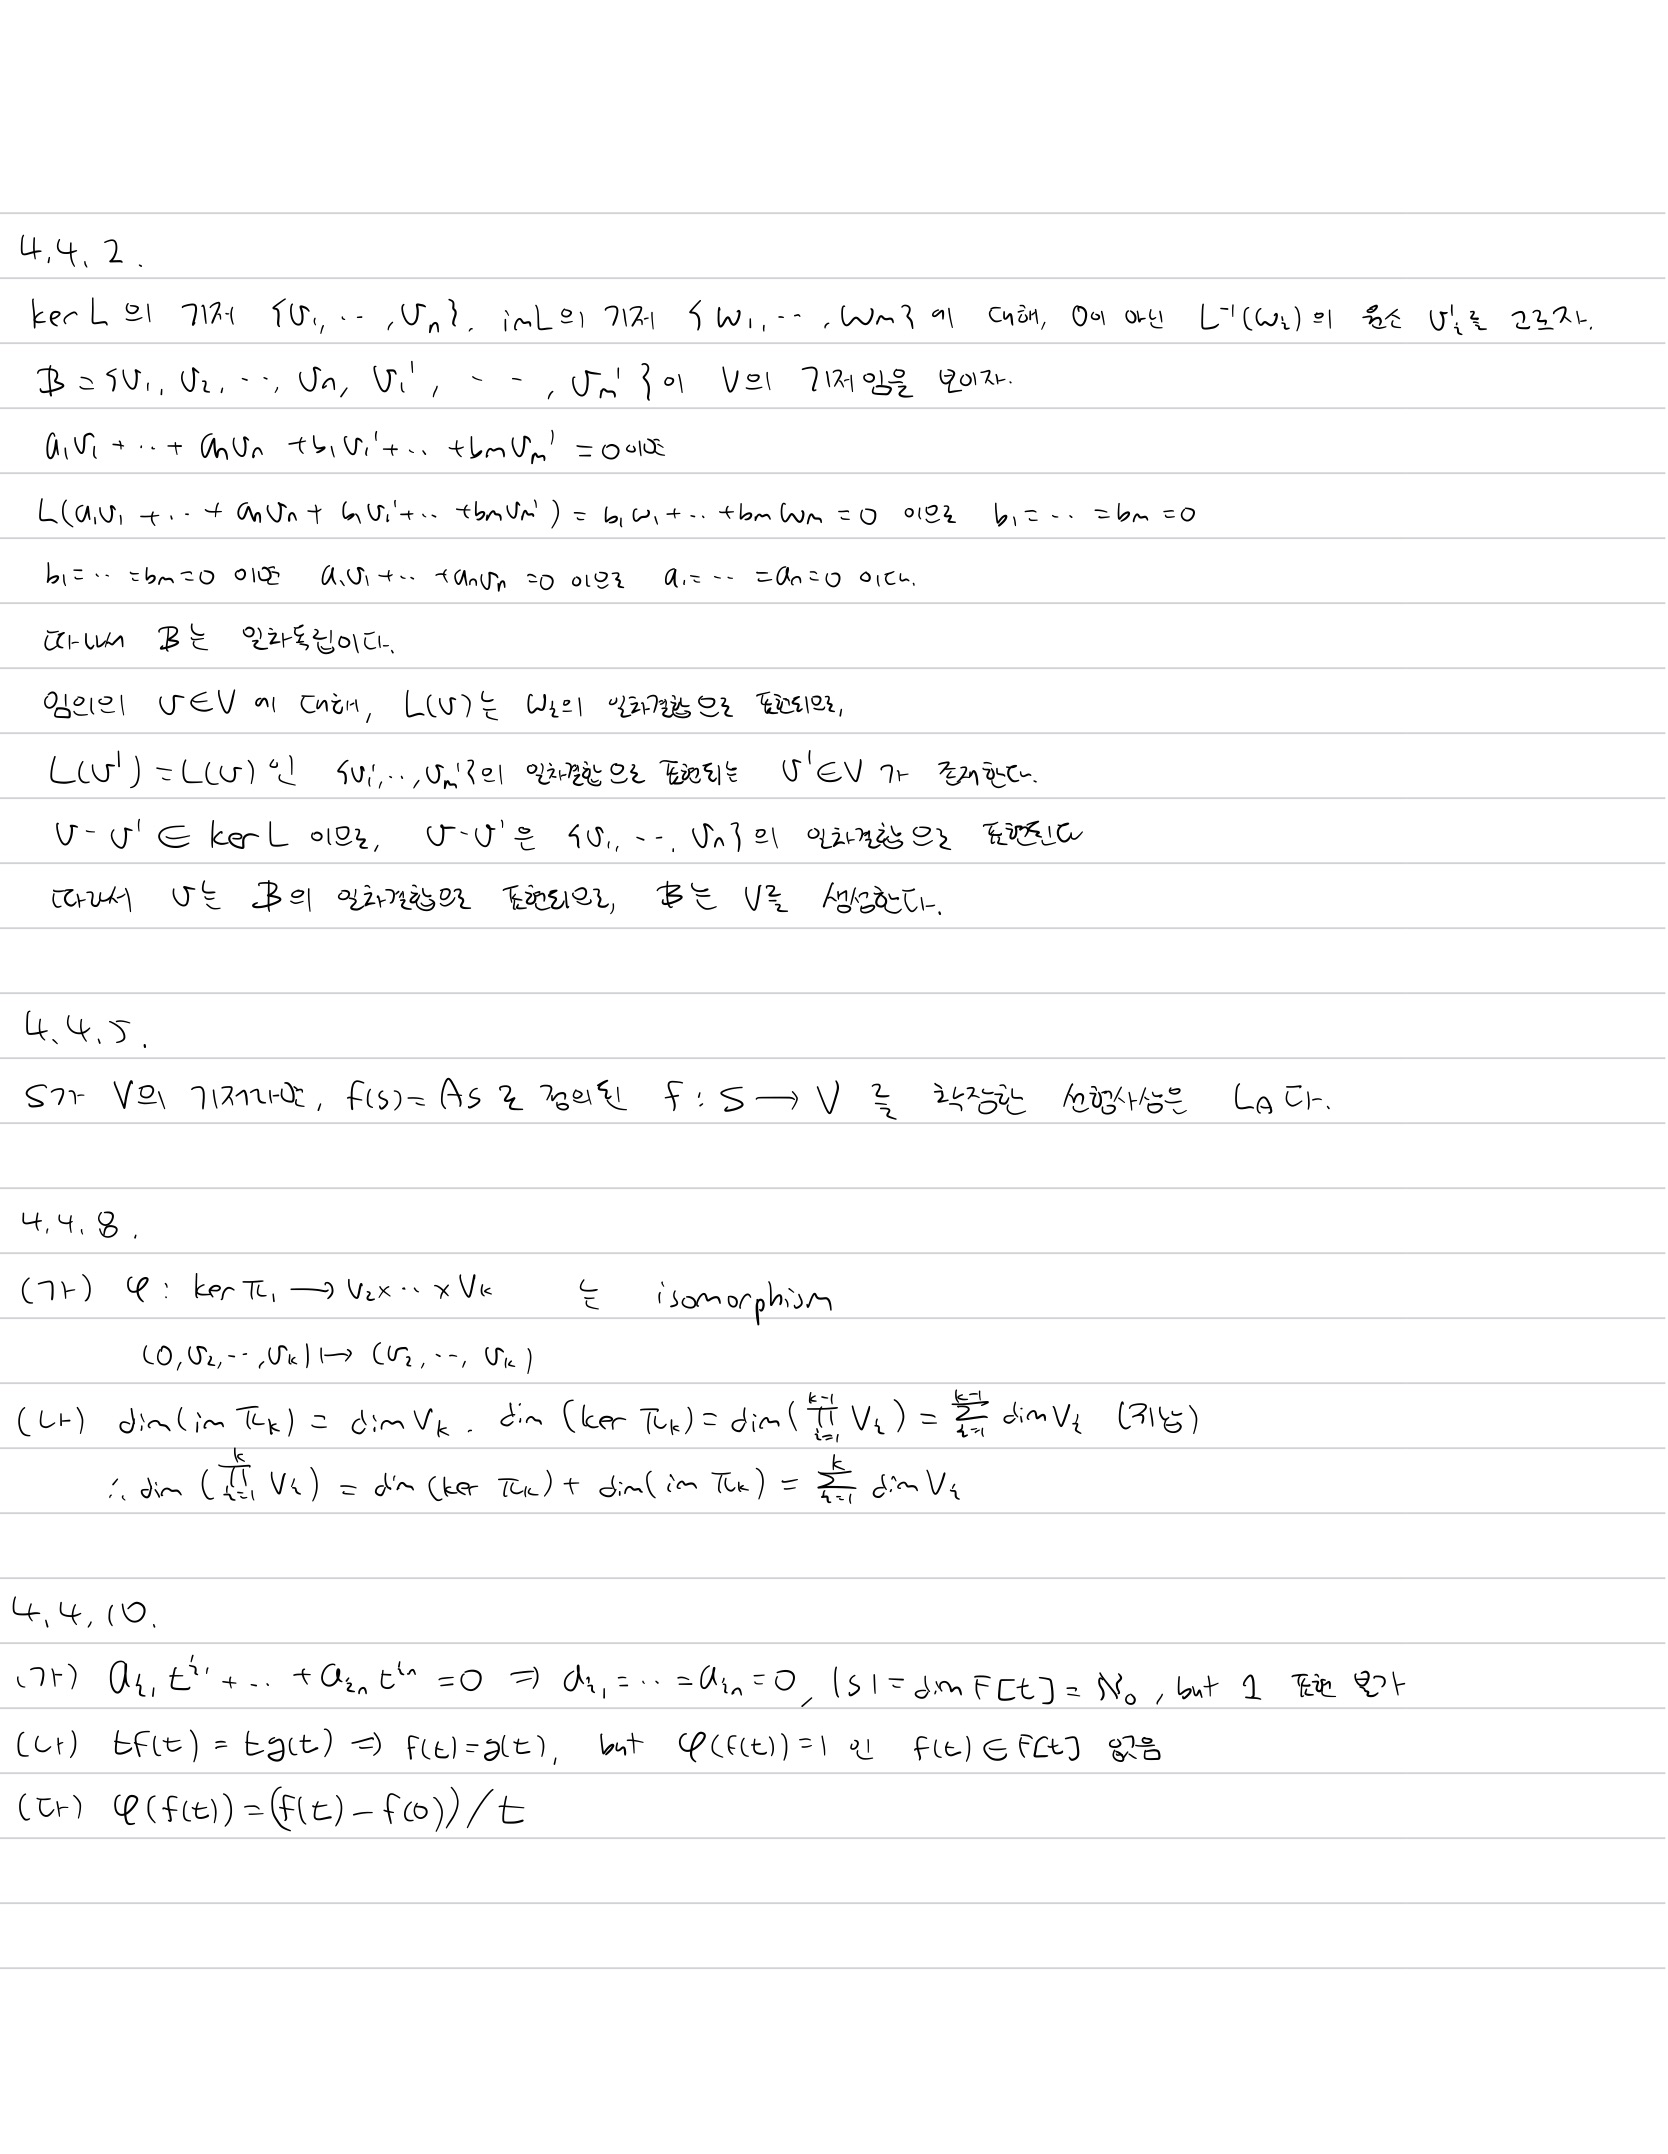 4.4.2.
ker L의 기저 {v₁, ‥, vₙ}, im L의 기저 {w₁, ‥, wₘ}에 대해, 0이 아닌 L⁻¹(wᵢ)의 원소 vᵢ'를 고르자.
B = {v₁, v₂, ‥, vₙ, v₁', ‥, vₘ'}이 V의 기저임을 보이자.
a₁v₁ + ‥ + aₙvₙ + b₁v₁' + ‥ + bₘvₘ' = 0 이면
L(a₁v₁ + ‥ + aₙvₙ + b₁v₁' + ‥ + bₘvₘ') = b₁w₁ + ‥ + bₘwₘ = 0 이므로 b₁ = ‥ = bₘ = 0
b₁ = ‥ = bₘ = 0 이면 a₁v₁ + ‥ + aₙvₙ = 0 이므로 a₁ = ‥ = aₙ = 0 이다.
따라서 B는 일차독립이다.
임의의 v ∈ V에 대해, L(v)는 wᵢ의 일차결합으로 표현되므로,
L(v') = L(v)인 {v₁', ‥, vₘ'}의 일차결합으로 표현되는 v' ∈ V가 존재한다.
v - v' ∈ ker L 이므로, v - v'은 {v₁, ‥, vₙ}의 일차결합으로 표현된다
따라서 v는 B의 일차결합으로 표현되므로, B는 V를 생성한다.
4.4.5.
S가 V의 기저라면, f(s) = As로 정의된 f : S → V를 확장한 선형사상은 L_A다.
4.4.8.
(가) φ : ker π₁ → V₂ × ‥ × Vₖ 는 isomorphism
(0, v₂, ‥, vₖ) ↦ (v₂, ‥, vₖ)
(나) dim(im πₖ) = dim Vₖ. dim(ker πₖ) = dim(∏ᵢ₌₁ᵏ⁻¹ Vᵢ) = ∑ᵢ₌₁ᵏ⁻¹ dim Vᵢ (귀납)
∴ dim(∏ᵢ₌₁ᵏ Vᵢ) = dim(ker πₖ) + dim(im πₖ) = ∑ᵢ₌₁ᵏ dim Vᵢ
4.4.10.
(가) a_{i₁}t^{i₁} + ‥ + a_{iₙ}t^{iₙ} = 0 ⇒ a_{i₁} = ‥ = a_{iₙ} = 0, |S| = dim F[t] = ℵ₀, but 1 표현 불가
(나) tf(t) = tg(t) ⇒ f(t) = g(t), but φ(f(t)) = 1 인 f(t) ∈ F[t] 없음
(다) φ(f(t)) = (f(t) - f(0))/t